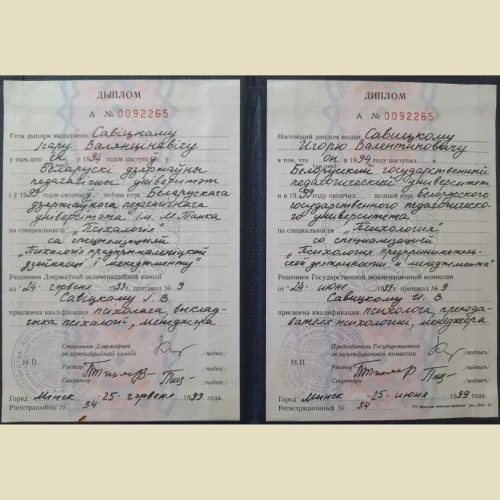 ДЫПЛОМ
А № 0092265
Гэты дыплом выдадзены Савіцкаму
Ігару Валянцінавічу
у тым, што ён у 1994 годзе паступіў у
Беларускі дзяржаўны
педагагічны універсітэт
і ў 1999 годзе скончыў поўны курс Беларускага
дзяржаўнага педагагічнага
універсітэта ім. М. Танка
па спецыяльнасці „Псіхалогія"
са спецыялізацыяй
„Псіхалогія прадпрымальніцкай
дзейнасці і менеджменту"
Рашэннем Дзяржаўнай экзаменацыйнай камісіі
ад "24" чэрвеня 1999г. пратакол № 9
Савіцкаму І. В.
прысвоена кваліфікацыя псіхолага, выклад-
чыка псіхалогіі, менеджэра
Старшыня Дзяржаўнай
экзаменацыйнай камісіі /подпіс/
М.П. Рэктар /подпіс/
Сакратар /подпіс/
Горад Мінск 25 чэрвеня 1999 г.
Рэгістрацыйны № 34
ДИПЛОМ
А № 0092265
Настоящий диплом выдан Савицкому
Игорю Валентиновичу
в том, что он в 1994 году поступил в
Белорусский государственный
педагогический университет
и в 1999 году окончил полный курс Белорусского
государственного педагогическо-
го университета
по специальности „Психология"
со специализацией
„Психология предприниматель-
ской деятельности и менеджмента"
Решением Государственной экзаменационной комиссии
от "24" июня 1999г. протокол № 9
Савицкому И. В.
присвоена квалификация психолога, препода-
вателя психологии, менеджера
Председатель Государственной
экзаменационной комиссии /подпись/
М.П. Ректор /подпись/
Секретарь /подпись/
Город Минск 25 июня 1999 год.
Регистрационный № 34